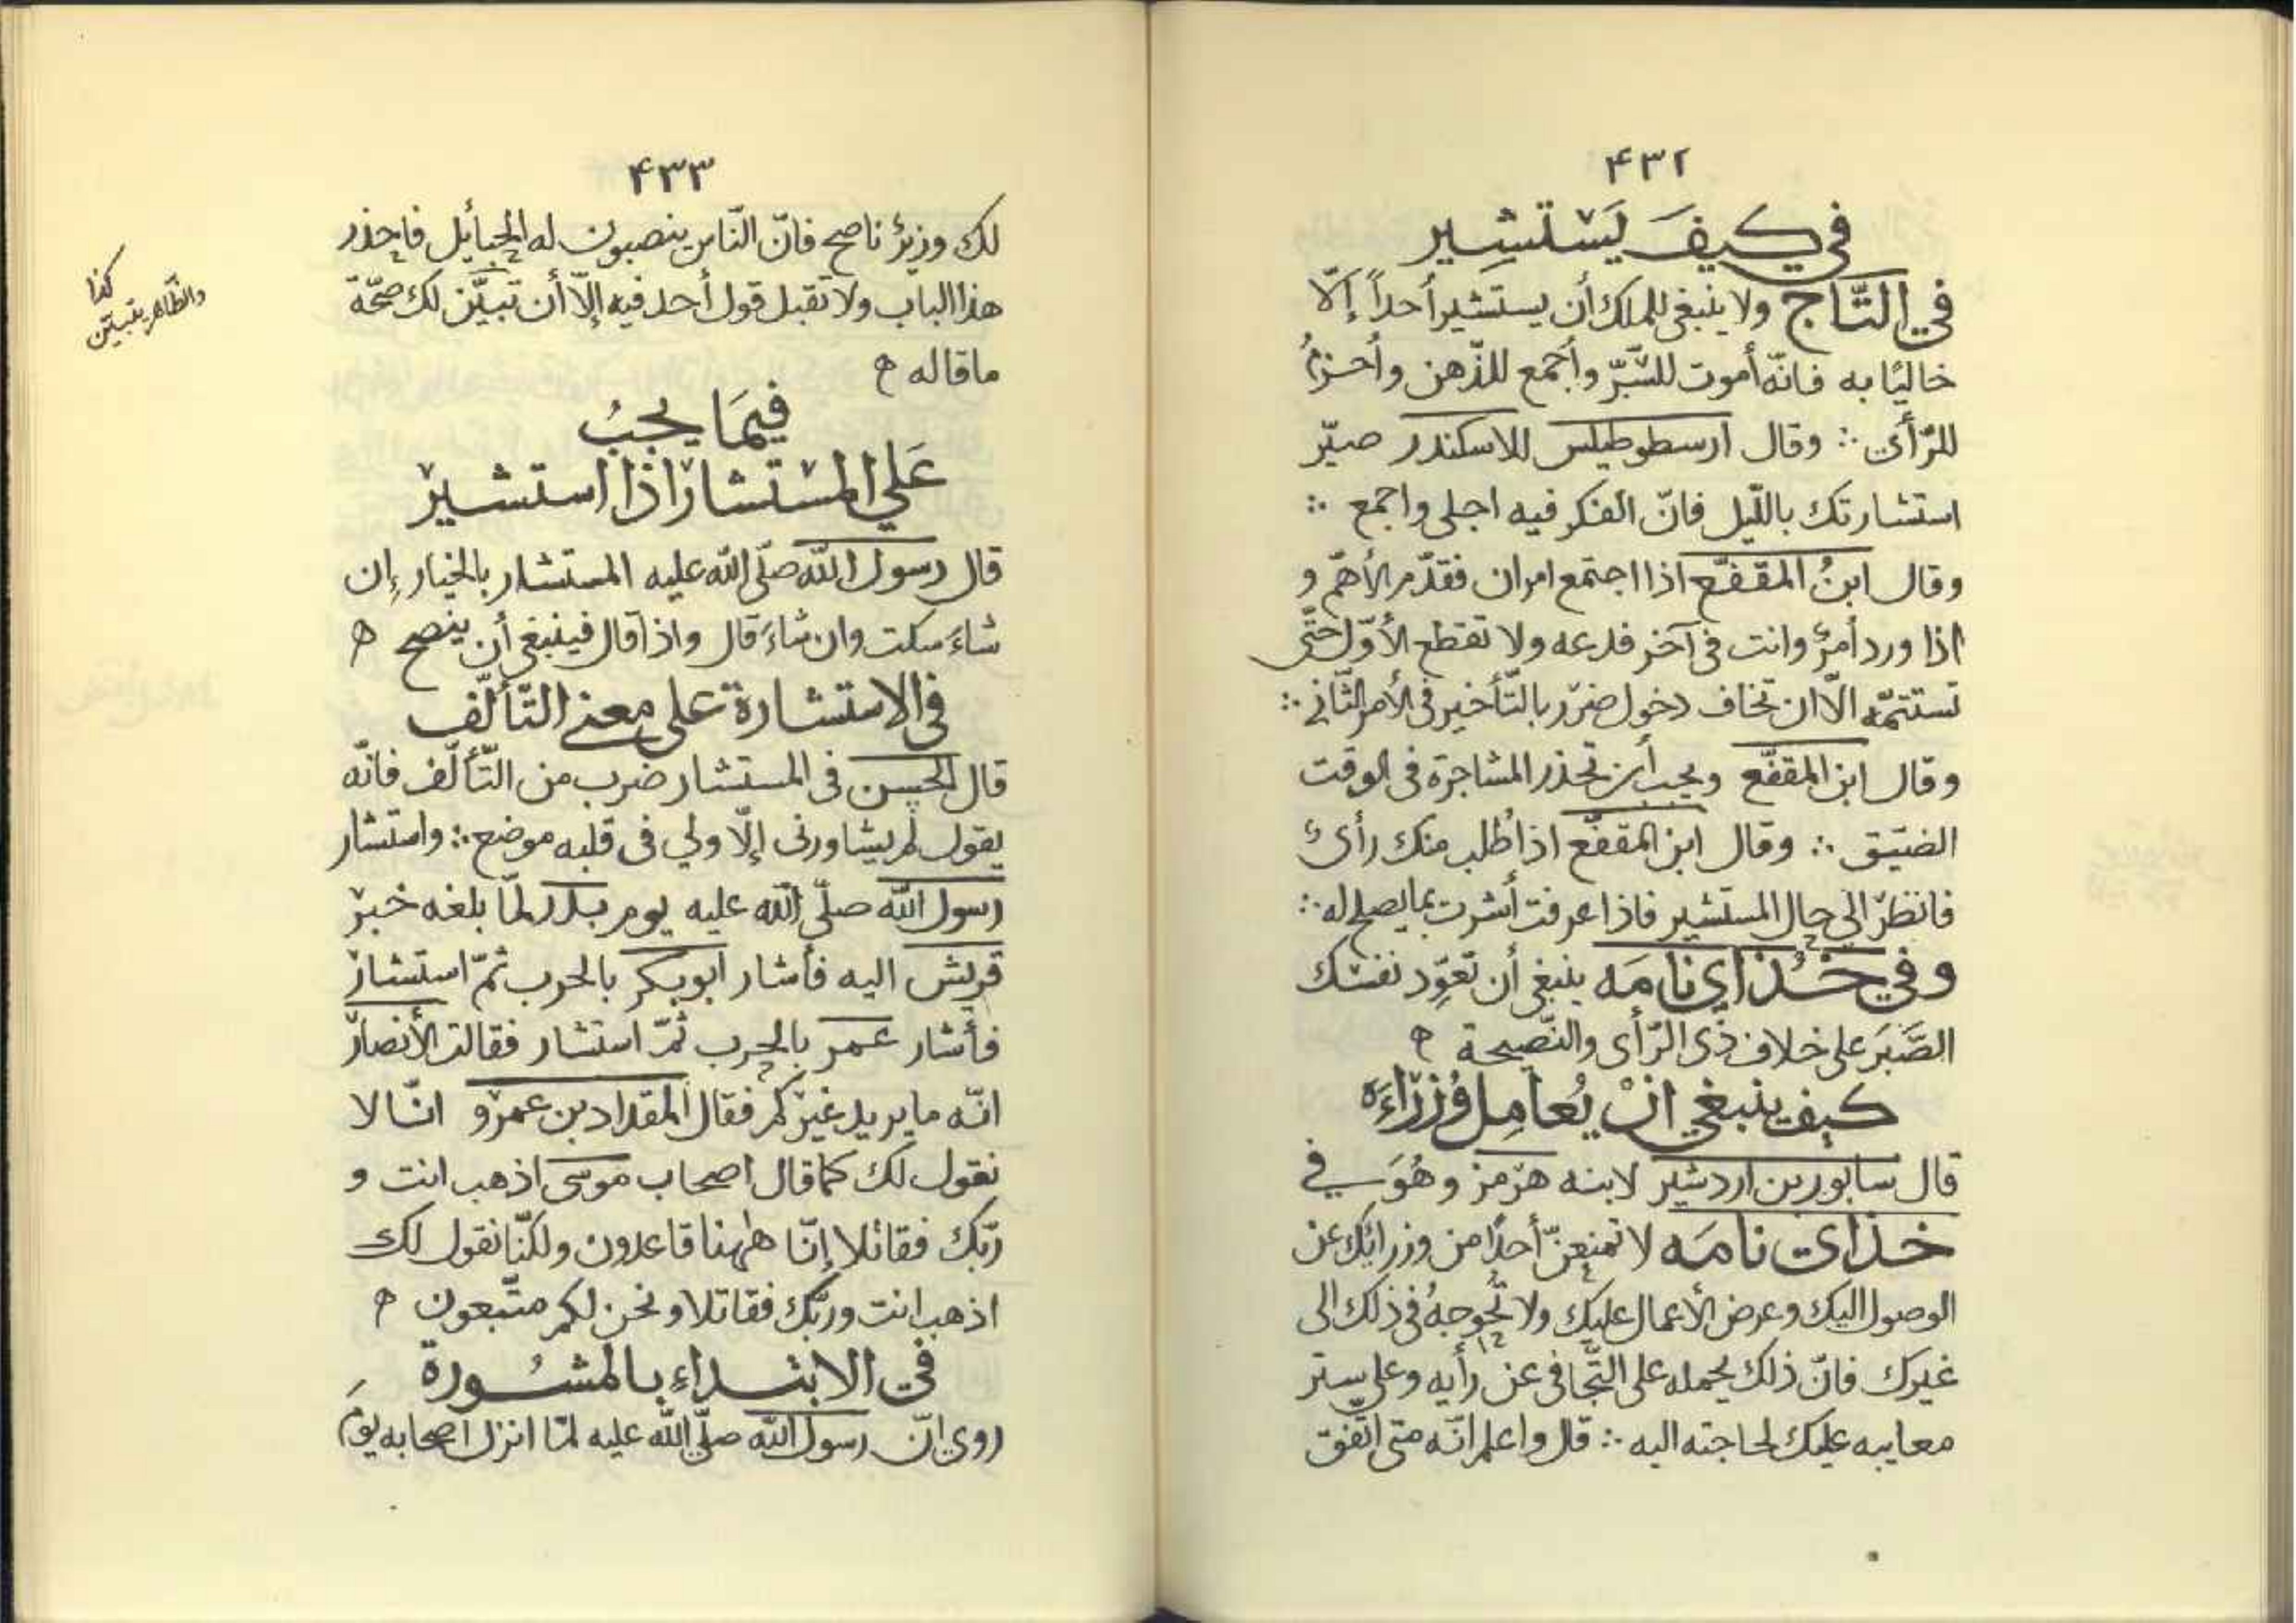 ۴۳۲
في كيفَ يَسْتَشِير
في التَّاج ولا ينبغى للملك أن يستشير أحداً إلّا
خاليًا به فانّه أموت للسّرّ وأجمع للذّهن وأحزمُ
للرّأى ∴ وقال ارسطوطيلس للاسكندر صيّر
استشارتك باللّيل فانّ الفكر فيه اجلى واجمع ∴
وقال ابنُ المقفّع اذا اجتمع امران فقدّم الأهمّ و
اذا ورد أمرٌ وانت فى آخر فدعه ولا تقطع الأوّل حتّى
تستتمّه الّا ان تخاف دخول ضرر بالتّأخير فى الأمر الثّانى ∴
وقال ابن المقفّع ويجب أن تحذر المشاجرة فى الوقت
الضيّق ∴ وقال ابن المقفّع اذا طُلب منك رأىٌ
فانظر الى حال المستشير فاذا عرفت أشرت بما يصلح له ∴
وفي خُذاي نامَه ينبغى أن تعوّد نفسك
الصَّبَر على خلاف ذى الرّأى والنّصيحة ه
كيف ينبغي انْ يُعامِل وُزَراءَه
قال سابور بن اردشير لابنه هرمز وهُوَ في
خذاى نامَه لا تمنعنّ أحدًا من وزرائك عن
الوصول اليك وعرض الأعمال عليك ولا تُحوجهُ فى ذلك الى
غيرك فانّ ذلك يحمله على التّجافى عن رأيه وعلى ستر
معايبه عليك لحاجته اليه ∴ قال واعلم انّه متى اتّفق
۴۳۳
لك وزيرٌ ناصح فانّ النّاس ينصبون له الحبائل فاحذر
هذا الباب ولا تقبل قول أحد فيه إلّا أن تبيَّن لك صحّة
ماقاله ه
كذا
والظّاهر يتبيّن
فيمَا يجبُ
عَلي المسْتشار اذا استشير
قال رسول الله صلّى الله عليه المستشار بالخيار إن
شاءَ سكت وان شاءَ قال واذا قال فينبغى أن ينصح ه
فى الاستشارة على معنى التّألّف
قال الحسن فى المستشار ضرب من التّألّف فانّه
يقول لم يشاورنى إلّا ولي فى قلبه موضع ∴ واستشار
رسول الله صلّى الله عليه يوم بدر لمّا بلغه خبر
قريش اليه فأشار ابوبكر بالحرب ثمّ استشار
فأشار عمر بالحرب ثمّ استشار فقالت الأنصار
انّه ما يريد غيركم فقال المقداد بن عمرو انّا لا
نقول لك كما قال اصحاب موسى اذهب انت و
ربّك فقاتلا إنّا هٰهنا قاعدون ولكنّا نقول لك
اذهب انت وربّك فقاتلا ونحن لكم متّبعون ه
فى الابتداء بالمشُورة
روي انّ رسول الله صلّى الله عليه لمّا انزل اصحابه يومَ